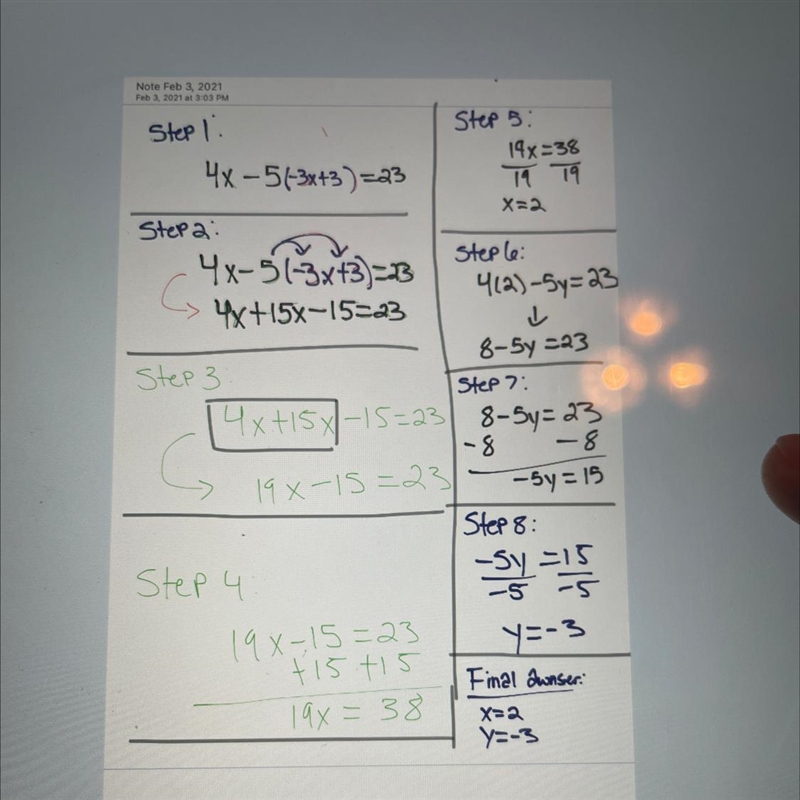 Note Feb 3, 2021
Feb 3, 2021 at 3:03 PM
Step 1:
4x - 5(-3x+3) = 23
Step 2:
4x - 5(-3x+3) = 23
4x+15x-15=23
Step 3
4x+15x-15=23
19x-15=23
Step 4
19x-15=23
+15 +15
19x = 38
Step 5:
19x=38
19 19
x=2
Step 6:
4(2)-5y=23
↓
8-5y=23
Step 7:
8-5y=23
-8 -8
-5y=15
Step 8:
-5y=15
-5 -5
y=-3
Final Awnser:
x=2
y=-3